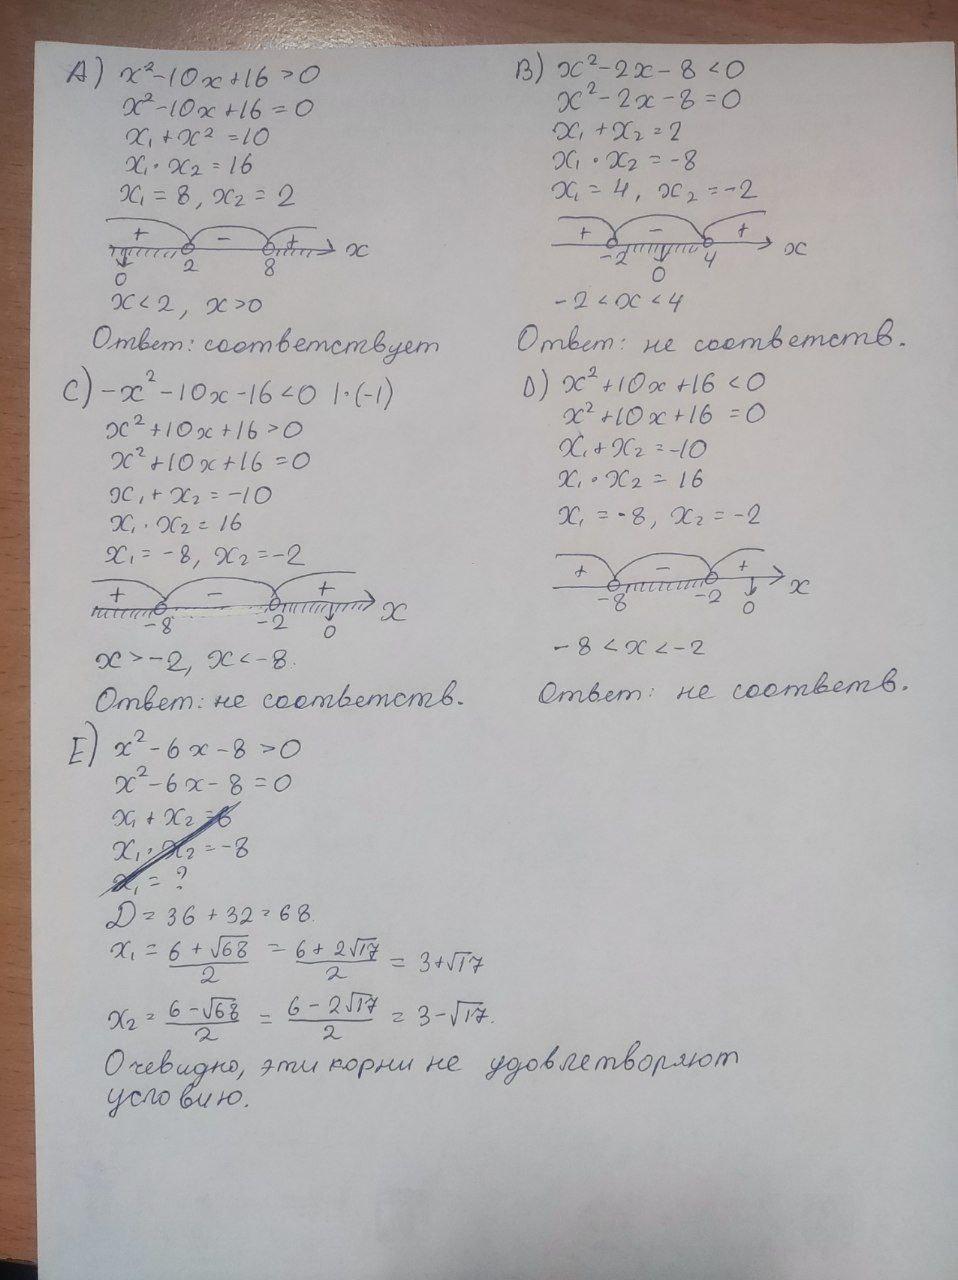 A) x²-10x+16>0
x²-10x+16=0
x₁+x²=10
x₁·x₂=16
x₁=8, x₂=2
+ - + x
0 2 8
x<2, x>0
Ответ: соответствует
B) x²-2x-8<0
x²-2x-8=0
x₁+x₂=2
x₁·x₂=-8
x₁=4, x₂=-2
+ - + x
-2 0 4
-2<x<4
Ответ: не соответств.
C) -x²-10x-16<0 |·(-1)
x²+10x+16>0
x²+10x+16=0
x₁+x₂=-10
x₁·x₂=16
x₁=-8, x₂=-2
+ - + x
-8 -2 0
x>-2, x<-8.
Ответ: не соответств.
D) x²+10x+16<0
x²+10x+16=0
x₁+x₂=-10
x₁·x₂=16
x₁=-8, x₂=-2
+ - + x
-8 -2 0
-8<x<-2
Ответ: не соответв.
E) x²-6x-8>0
x²-6x-8=0
x₁+x₂=6
x₁·x₂=-8
x₁=?
D=36+32=68.
x₁=(6+√68)/2=(6+2√17)/2=3+√17
x₂=(6-√68)/2=(6-2√17)/2=3-√17.
Очевидно, эти корни не удовлетворяют
условию.